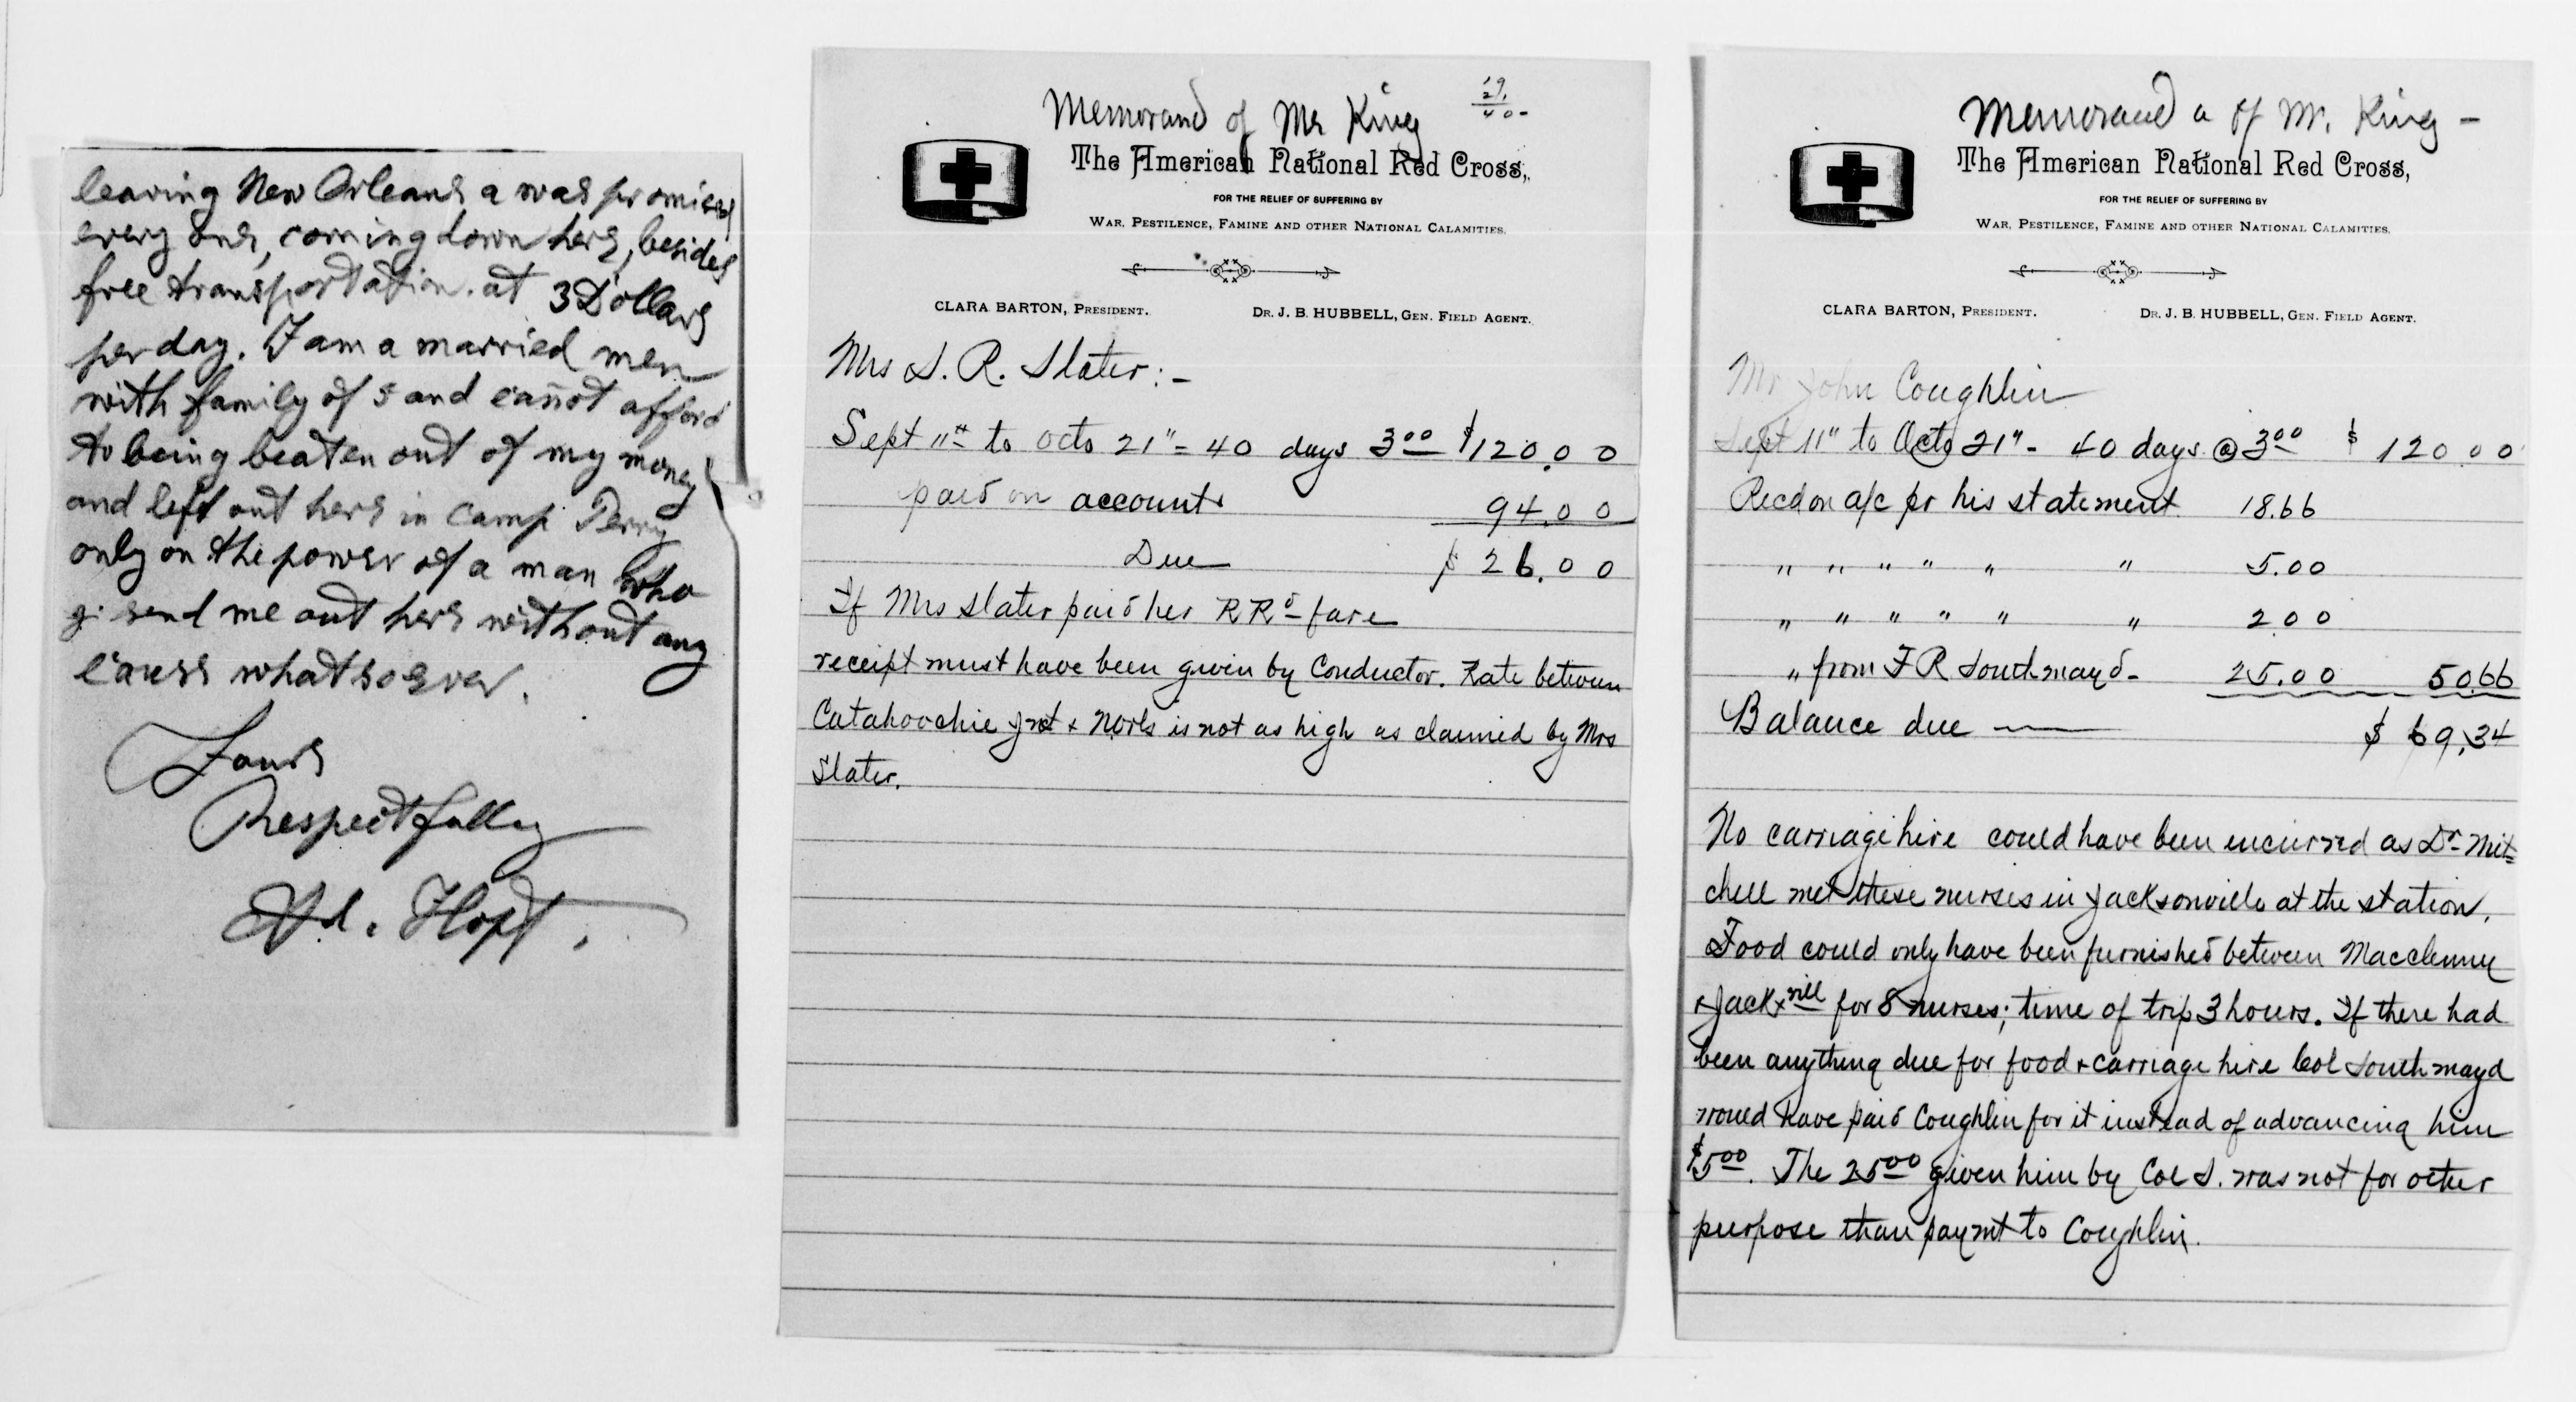 leaving New Orleans a was promised
every one, coming down here, besides
free transportation. at 3 Dollars
per day. I am a married men
with family of 5 and cannot afford
to being beaten out of my money
and left out here in Camp Perry
only on the power of a man who
send me out here without any
cause whatsoever.
Yours
Respectfully
Ad. Hopf.
Memorand of Mr King
29,
40-
The American National Red Cross,
FOR THE RELIEF OF SUFFERING BY
WAR, PESTILENCE, FAMINE AND OTHER NATIONAL CALAMITIES.
CLARA BARTON, PRESIDENT. DR. J. B. HUBBELL, GEN. FIELD AGENT.
Mrs S. R. Slater:-
Sept 11" to Octo 21" = 40 days 3 00 $120.00
paid on account 94.00
Due $ 26.00
If Mrs Slater paid her RRd fare
receipt must have been given by Conductor. Rate between
Catahoochie Jnct + NOrls is not as high as claimed by Mrs
Slater.
Memorand a of Mr. King -
The American National Red Cross,
FOR THE RELIEF OF SUFFERING BY
WAR, PESTILENCE, FAMINE AND OTHER NATIONAL CALAMITIES.
CLARA BARTON, PRESIDENT. DR. J. B. HUBBELL, GEN. FIELD AGENT.
Mr John Coughlin
Sept 11" to Octo 21" - 40 days @ 3 00 $ 120.00
Recd on a/c pr his statement 18.66
" " " " " " 5.00
" " " " " " 2.00
" from F R Southmayd - 25.00 50.66
Balance due — $ 69,34
No carriage hire could have been incurred as Dr Mit=
chell met these nurses in Jacksonville at the station.
Food could only have been furnished between Macclenny
+ Jackxville for 8 nurses; time of trip 3 hours. If there had
been anything due for food + carriage hire Col Southmayd
would have paid Coughlin for it instead of advancing him
$5 00. The 25 00 given him by Col S. was not for other
purpose than paymt to Coughlin.